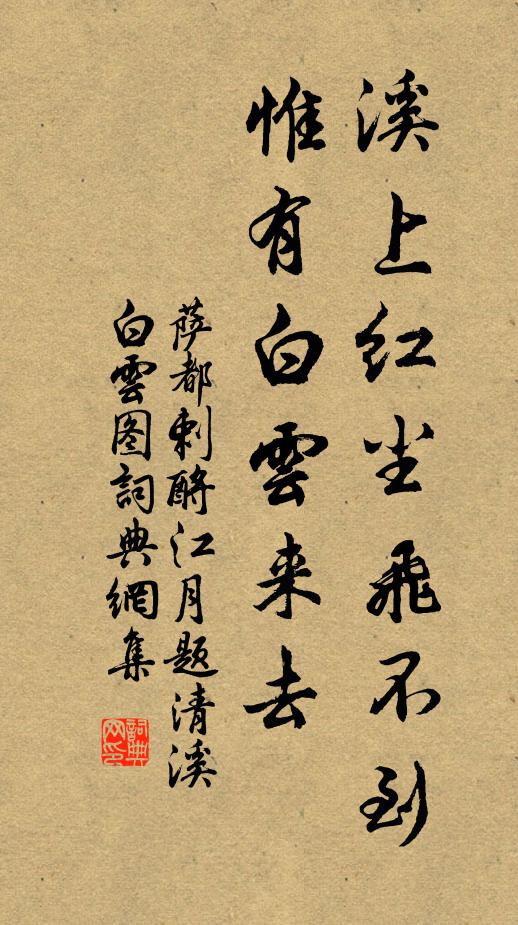 溪上红尘飛不到
惟有白雲来去
萨都剌酹江月题清溪
白雲图詞典網集
詞典网印